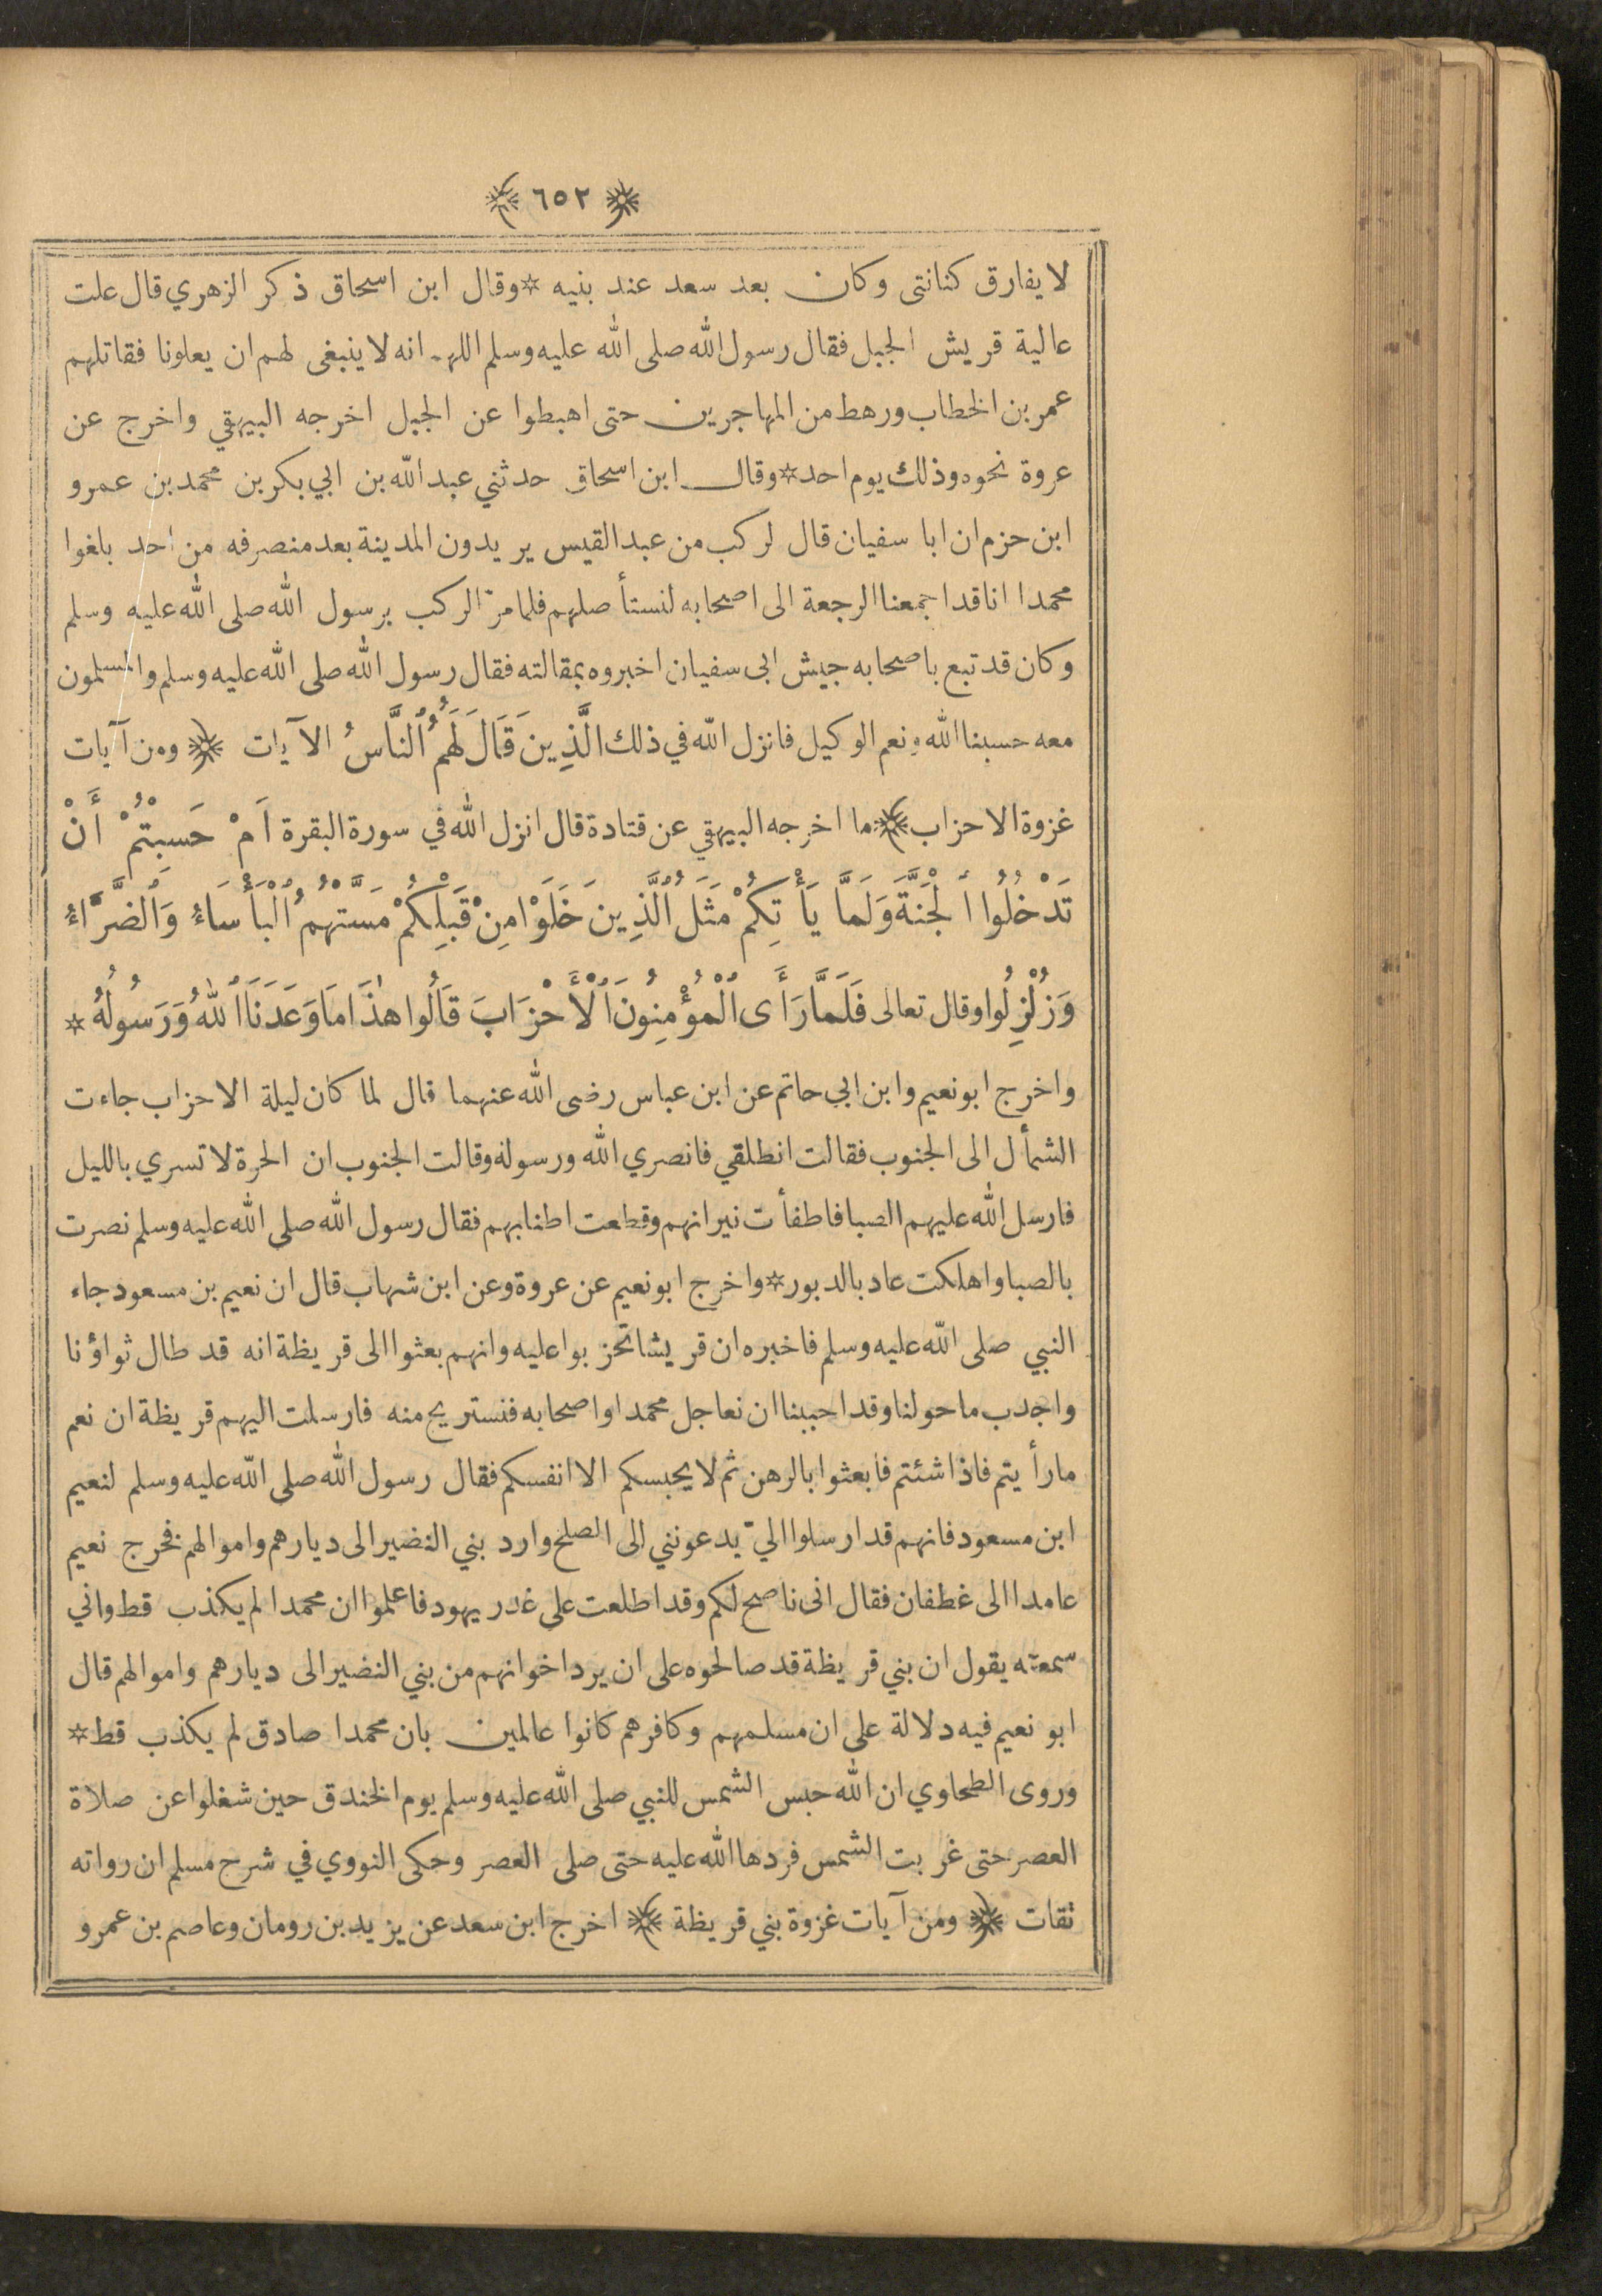 ﴿ ٦٥٢ ﴾
لا يفارق كنانتى وكان بعد سعد عند بنيه * وقال ابن اسحاق ذكر الزهري قال علت
عالية قريش الجبل فقال رسول الله صلى الله عليه وسلم اللهم انه لا ينبغى لهم ان يعلونا فقاتلهم
عمر بن الخطاب ورهط من المهاجرين حتى اهبطوا عن الجبل اخرجه البيهقي واخرج عن
عروة نحوه وذلك يوم احد * وقال ابن اسحاق حدثني عبد الله بن ابي بكر بن محمد بن عمرو
ابن حزم ان ابا سفيان قال لركب من عبد القيس يريدون المدينة بعد منصرفه من احد بلغوا
محمدا انا قد اجمعنا الرجعة الى اصحابه لنستأصلهم فلما مرّ الركب برسول الله صلى الله عليه وسلم
وكان قد تبع باصحابه جيش ابى سفيان اخبروه بمقالته فقال رسول الله صلى الله عليه وسلم والمسلمون
معه حسبنا الله ونعم الوكيل فانزل الله في ذلك الَّذِينَ قَالَ لَهُمُ ٱلنَّاسُ الآيات ﴿ ومن آيات
غزوة الاحزاب ﴾ ما اخرجه البيهقي عن قتادة قال انزل الله في سورة البقرة اَمْ حَسِبْتُمْ أَنْ
تَدْخُلُوا ٱلْجَنَّةَ وَلَمَّا يَأْتِكُمْ مَثَلُ ٱلَّذِينَ خَلَوْا مِنْ قَبْلِكُمْ مَسَّتْهُمُ ٱلْبَأْسَاءُ وَٱلضَّرَّاءُ
وَزُلْزِلُوا وقال تعالى فَلَمَّا رَأَى ٱلْمُؤْمِنُونَ ٱلْأَحْزَابَ قَالُوا هٰذَا مَا وَعَدَنَا ٱللهُ وَرَسُولُهُ *
واخرج ابو نعيم وابن ابي حاتم عن ابن عباس رضى الله عنهما قال لما كان ليلة الاحزاب جاءت
الشمأل الى الجنوب فقالت انطلقي فانصري الله ورسوله وقالت الجنوب ان الحرة لا تسري بالليل
فارسل الله عليهم الصبا فاطفأت نيرانهم وقطعت اطنابهم فقال رسول الله صلى الله عليه وسلم نصرت
بالصبا واهلكت عاد بالدبور * واخرج ابو نعيم عن عروة وعن ابن شهاب قال ان نعيم بن مسعود جاء
النبي صلى الله عليه وسلم فاخبره ان قريشا تحزبوا عليه وانهم بعثوا الى قريظة انه قد طال ثواؤنا
واجدب ما حولنا وقد احببنا ان نعاجل محمدا واصحابه فنستريح منه فارسلت اليهم قريظة ان نعم
ما رأيتم فاذا شئتم فابعثوا بالرهن ثم لا يحبسكم الا انفسكم فقال رسول الله صلى الله عليه وسلم لنعيم
ابن مسعود فانهم قد ارسلوا اليّ يدعونني الى الصلح وارد بني النضير الى ديارهم واموالهم فخرج نعيم
عامدا الى غطفان فقال انى ناصح لكم وقد اطلعت على غدر يهود فاعلموا ان محمدا لم يكذب قط واني
سمعته يقول ان بني قريظة قد صالحوه على ان يرد اخوانهم من بني النضير الى ديارهم واموالهم قال
ابو نعيم فيه دلالة على ان مسلمهم وكافرهم كانوا عالمين بان محمدا صادق لم يكذب قط *
وروى الطحاوي ان الله حبس الشمس للنبي صلى الله عليه وسلم يوم الخندق حين شغلوا عن صلاة
العصر حتى غربت الشمس فردها الله عليه حتى صلى العصر وحكى النووي في شرح مسلم ان رواته
ثقات ﴿ ومن آيات غزوة بني قريظة ﴾ اخرج ابن سعد عن يزيد بن رومان وعاصم بن عمرو